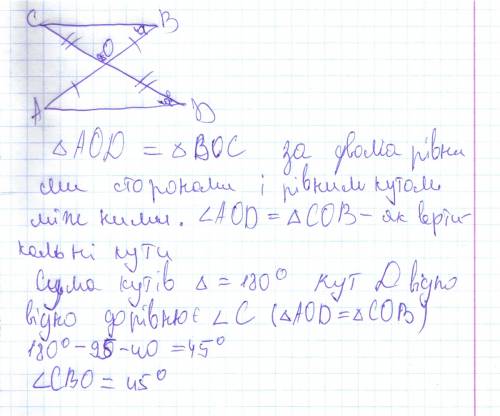 C B
O
A D
△AOD = △BOC за двома рівни
ми сторонами і рівним кутом
між ними. ∠AOD = △COB – як верти
кальні кути
Сума кутів △ = 180° кут D відпо
відно дорівнює ∠C (△AOD = △COB)
180° - 95 - 40 = 45°
∠CBO = 45°